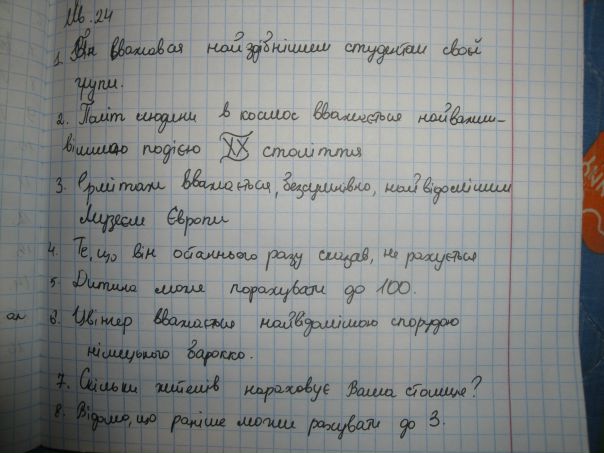 Ив. 24
1. Він вважався найздібнішим студентом своєї
групи.
2. Політ людини в космос вважається найважли-
вішою подією XX століття
3. Ермітаж вважається, безсумнівно, найвідомішим
Музеєм Європи
4. Те, що він останнього разу сказав, не рахується
5. Дитина може порахувати до 100.
6. Цвінгер вважається найвідомішою спорудою
німецького барокко.
7. Скільки жителів нараховує Ваша столиця?
8. Відомо, що раніше могли рахувати до 3.